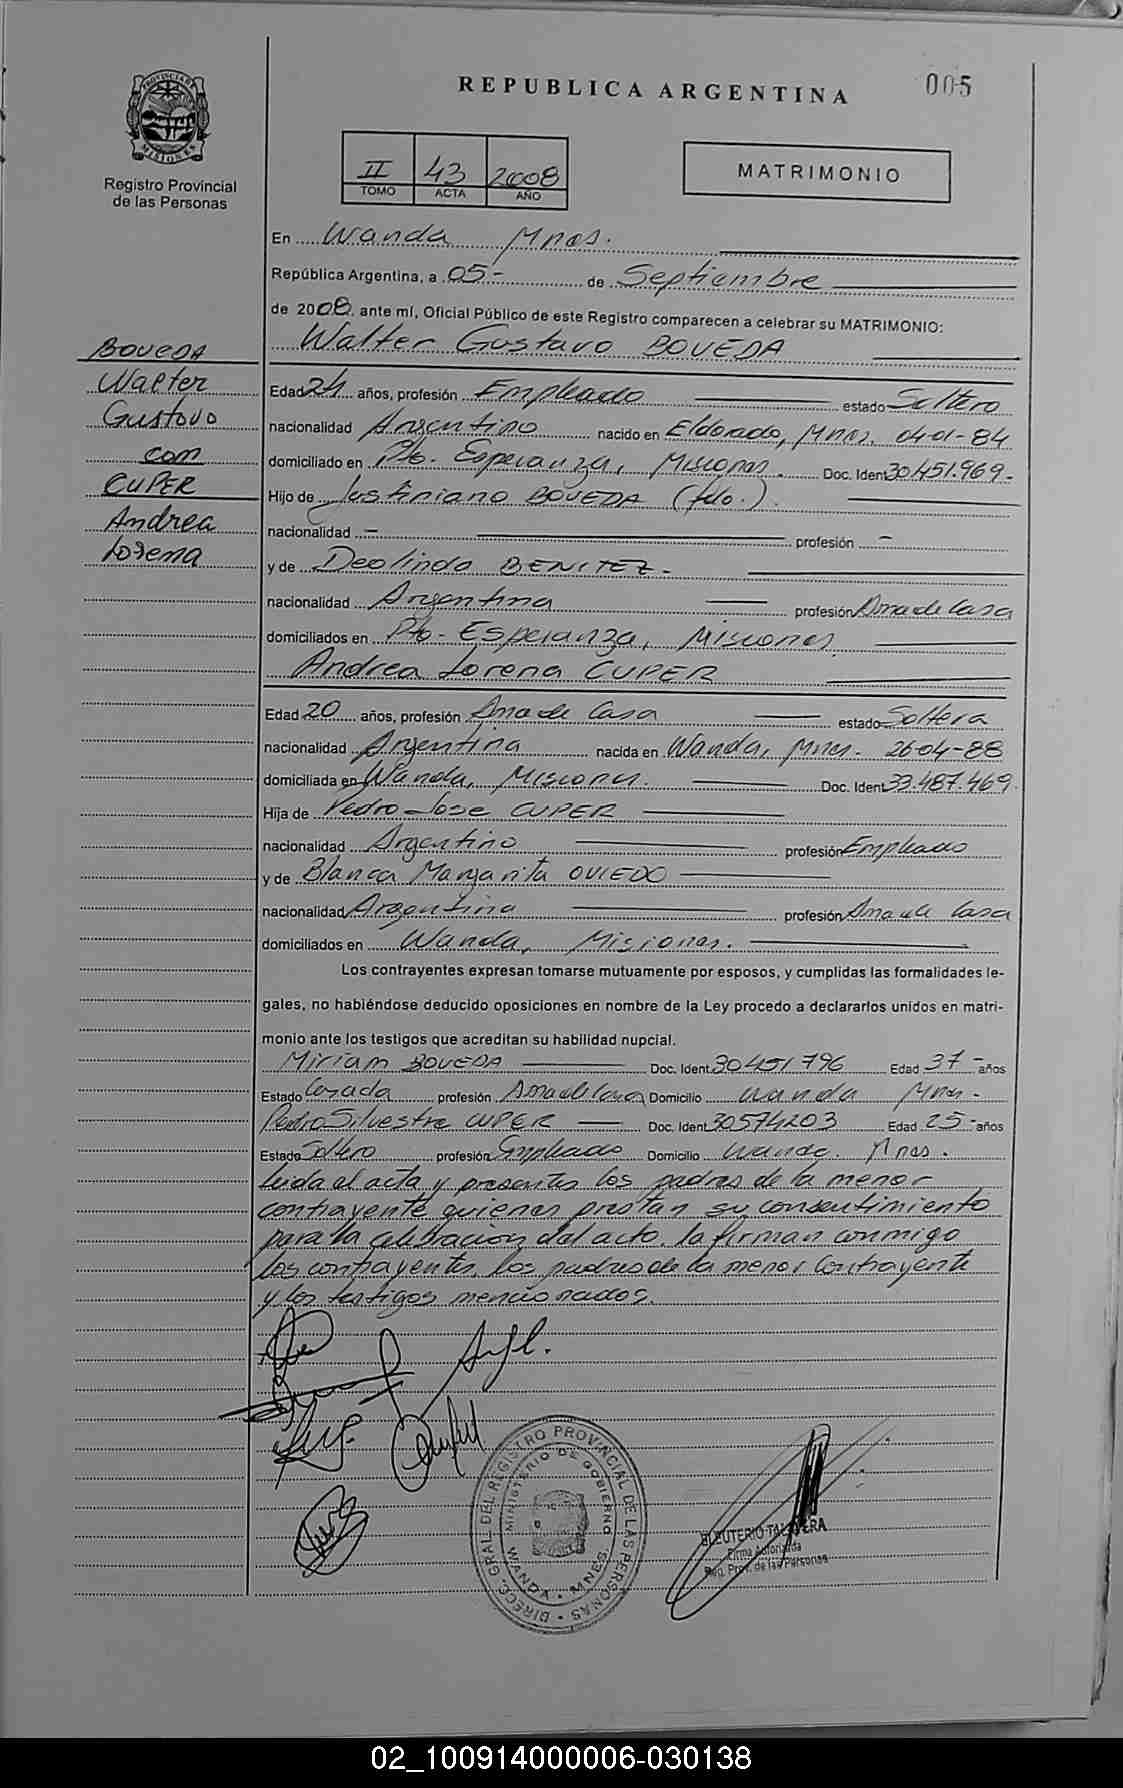 REPUBLICA ARGENTINA
005
PROVINCIA DE
MISIONES
Registro Provincial
de las Personas
II 43 2008
TOMO ACTA AÑO
MATRIMONIO
En Wanda Mnes.
República Argentina, a 05- de Septiembre
de 2008 ante mí, Oficial Público de este Registro comparecen a celebrar su MATRIMONIO:
Walter Gustavo BOVEDA
BOVEDA
Walter
Gustavo
con
CUPER
Andrea
Lorena
Edad 24 años, profesión Empleado estado Soltero
nacionalidad Argentino nacido en Eldorado, Mnes. 04-01-84
domiciliado en Pto. Esperanza, Misiones. Doc. Ident 30.451.969-
Hijo de Justiniano BOVEDA (fdo.)
nacionalidad - profesión -
y de Deolinda BENITEZ.-
nacionalidad Argentina profesión Ama de Casa
domiciliados en Pto- Esperanza, Misiones
Andrea Lorena CUPER
Edad 20 años, profesión Ama de Casa estado Soltera
nacionalidad Argentina nacida en Wanda, Mnes. 26-04-88
domiciliada en Wanda, Misiones. Doc. Ident 33.487.469.
Hija de Pedro Jose CUPER
nacionalidad Argentino profesión Empleado
y de Blanca Margarita OVIEDO
nacionalidad Argentina profesión Ama de Casa
domiciliados en Wanda, Misiones.
Los contrayentes expresan tomarse mutuamente por esposos, y cumplidas las formalidades le-
gales, no habiéndose deducido oposiciones en nombre de la Ley procedo a declararlos unidos en matri-
monio ante los testigos que acreditan su habilidad nupcial.
Miriam BOVEDA Doc. Ident. 30451796 Edad 37- años
Estado Casada profesión Ama de Casa Domicilio Wanda Mnes.
Pedro Silvestre CUPER Doc. Ident 30574203 Edad 25- años
Estado Soltero profesión Empleado Domicilio Wanda. Mnes.
Leida el acta y presentes los padres de la menor
contrayente quienes prestan su consentimiento
para la celebracion del acto. la firman conmigo
los contrayentes, los padres de la menor contrayente
y los testigos mencionados.
DIRECC. GRAL. DEL REGISTRO PROVINCIAL DE LAS PERSONAS
MINISTERIO DE GOBIERNO
WANDA - MNES
ELEUTERIO TALAVERA
Firma Autorizada
Reg. Prov. de las Personas
02_100914000006-030138